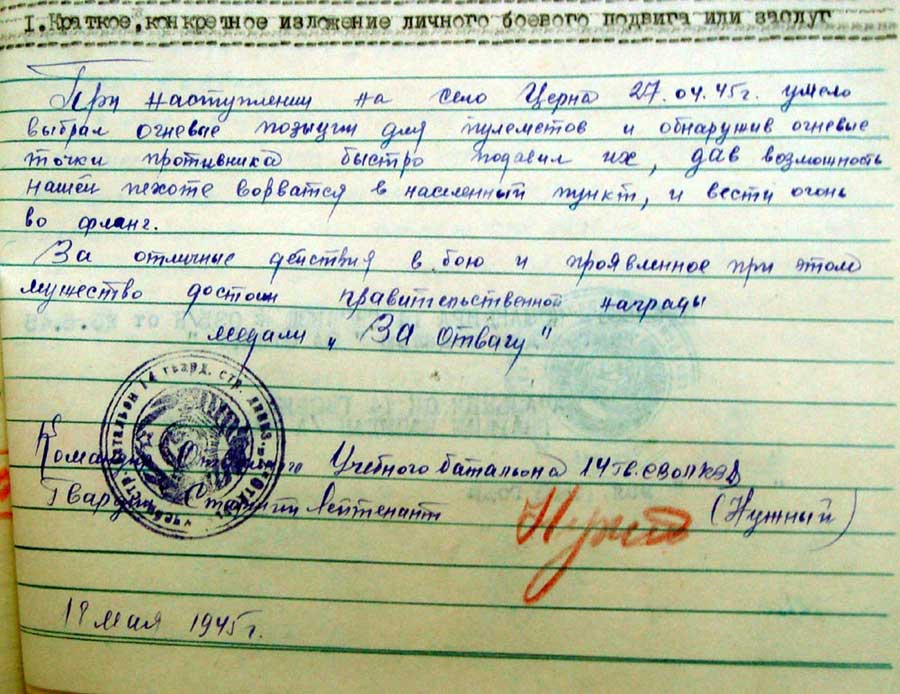 I. Краткое, конкретное изложение личного боевого подвига или заслуг
При наступлении на село Церна 27.04.45г. умело
выбрал огневые позыции для пулеметов и обнаружив огневые
точки противника быстро подавил их, дав возможность
нашей пехоте ворватся в населенный пункт, и вести огонь
во фланг.
За отличные действия в бою и проявленное при этом
мужество достоин правительственной награды
медали „За Отвагу"
Командир Отдельного Учебного батальона 14 гв.
Гвардии Старший лейтенант (Нужный)
мая 1945г.
14 гвард. стр. дивиз.